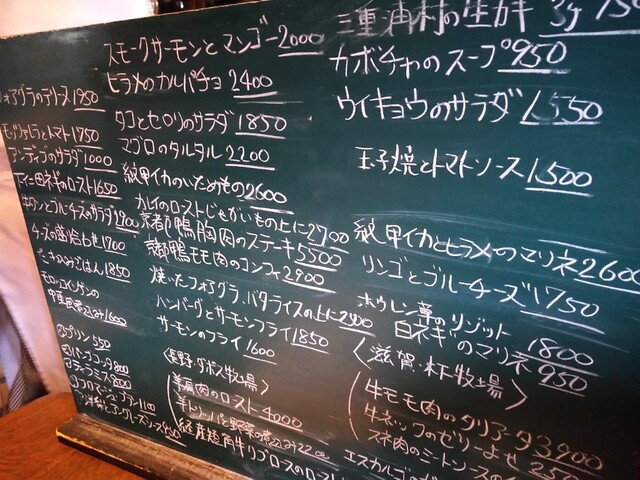 スモークサーモンとマンゴー2000
ヒラメのカルパチョ 2400
タコとセロリのサラダ 1850
マグロのタルタル 2200
紋甲イカのいためもの2600
カレイのローストじゃがいもの上に2700
京都鴨胸肉のステーキ5500
京都鴨モモ肉のコンフィ2900
焼いたフォアグラ、バターライスの上に2400
ハンバーグとサーモンフライ1850
サーモンのフライ 1600
〈長野・ダボス牧場〉
羊肩肉のロースト4000
の生ガキ
カボチャのスープ950
ウイキョウのサラダ 1550
玉子焼とトマトソース1500
紋甲イカとヒラメのマリネ2600
リンゴとブルーチーズ1750
ホウレン草のリゾット 1800
白ネギのマリネ 950
〈滋賀・木下牧場〉
牛モモ肉のタリアータ3900
牛ネックのゼリーよせ
スネ肉のミートソースの
エスカルゴの
グラのテリーヌ1950
とトマト1750
のサラダ1000
下仁田ネギのロースト1650
牛タンとブルーチーズのサラダ2700
チーズの盛合わせ1700
ごはん1850
モロッコインゲンの
1600
プリン550